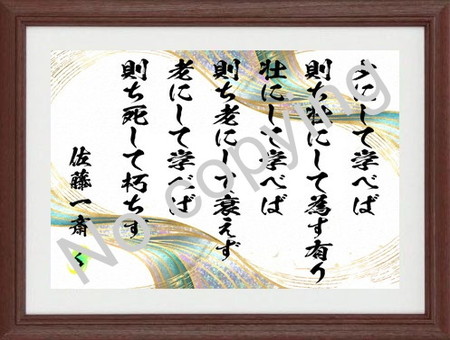 少にして学べば
則ち壮にして為す有り
壮にして学べば
則ち老にして衰えず
老にして学べば
則ち死して朽ちず
佐藤一斎 く
No copying